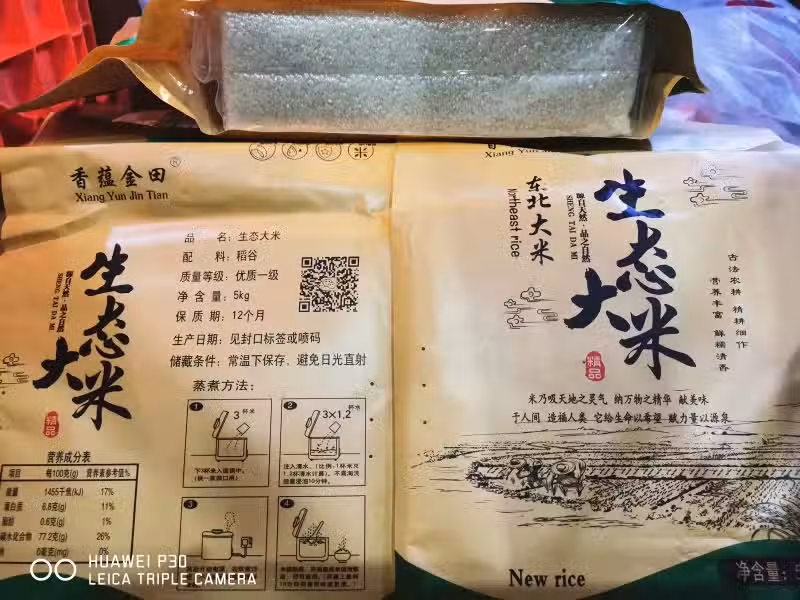 香蕴金田®
Xiang Yun Jin Tian
生态大米
源自天然·品之自然
SHENG TAI DA MI
精品
品 名：生态大米
配 料：稻谷
质量等级：优质一级
净 含 量：5kg
保 质 期：12个月
生产日期：见封口标签或喷码
储藏条件：常温下保存，避免日光直射
蒸煮方法：
1
3杯米
2
3×1.2杯水
3
4
营养成分表
项目 每100克(g) 营养素参考值%
能量 1455千焦(kJ) 17%
蛋白质 6.8克(g) 11%
脂肪 0.6克(g) 1%
碳水化合物 77.2克(g) 26%
0毫克(mg) 0%
米
Xiang Yun Jin Tian
东北大米
Northeast rice
源自天然·品之自然
SHENG TAI DA MI
生态大米
精品
古法农耕 精耕细作
营养丰富 鲜糯清香
米乃吸天地之灵气 纳万物之精华 献美味
于人间 造福人类 它给生命以希望 赋力量以源泉
New rice
净含量：
HUAWEI P30
LEICA TRIPLE CAMERA